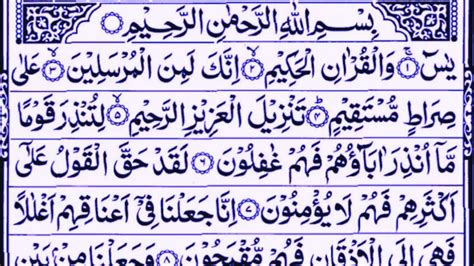 بِسْمِ اللّٰهِ الرَّحْمٰنِ الرَّحِیْمِ
یٰسٓ ۚ﴿۱﴾ وَالْقُرْاٰنِ الْحَكِیْمِ ۙ﴿۲﴾ اِنَّكَ لَمِنَ الْمُرْسَلِیْنَ ۙ﴿۳﴾ عَلٰی
صِرَاطٍ مُّسْتَقِیْمٍ ؕ﴿۴﴾ تَنْزِیْلَ الْعَزِیْزِ الرَّحِیْمِ ۙ﴿۵﴾ لِتُنْذِرَ قَوْمًا
مَّاۤ اُنْذِرَ اٰبَآؤُهُمْ فَهُمْ غٰفِلُوْنَ ﴿۶﴾ لَقَدْ حَقَّ الْقَوْلُ عَلٰۤی
اَكْثَرِهِمْ فَهُمْ لَا یُؤْمِنُوْنَ ﴿۷﴾ اِنَّا جَعَلْنَا فِیْۤ اَعْنَاقِهِمْ اَغْلٰلًا
فَهِیَ اِلَی الْاَذْقَانِ فَهُمْ مُّقْمَحُوْنَ ﴿۸﴾ وَجَعَلْنَا مِنْۢ بَیْنِ